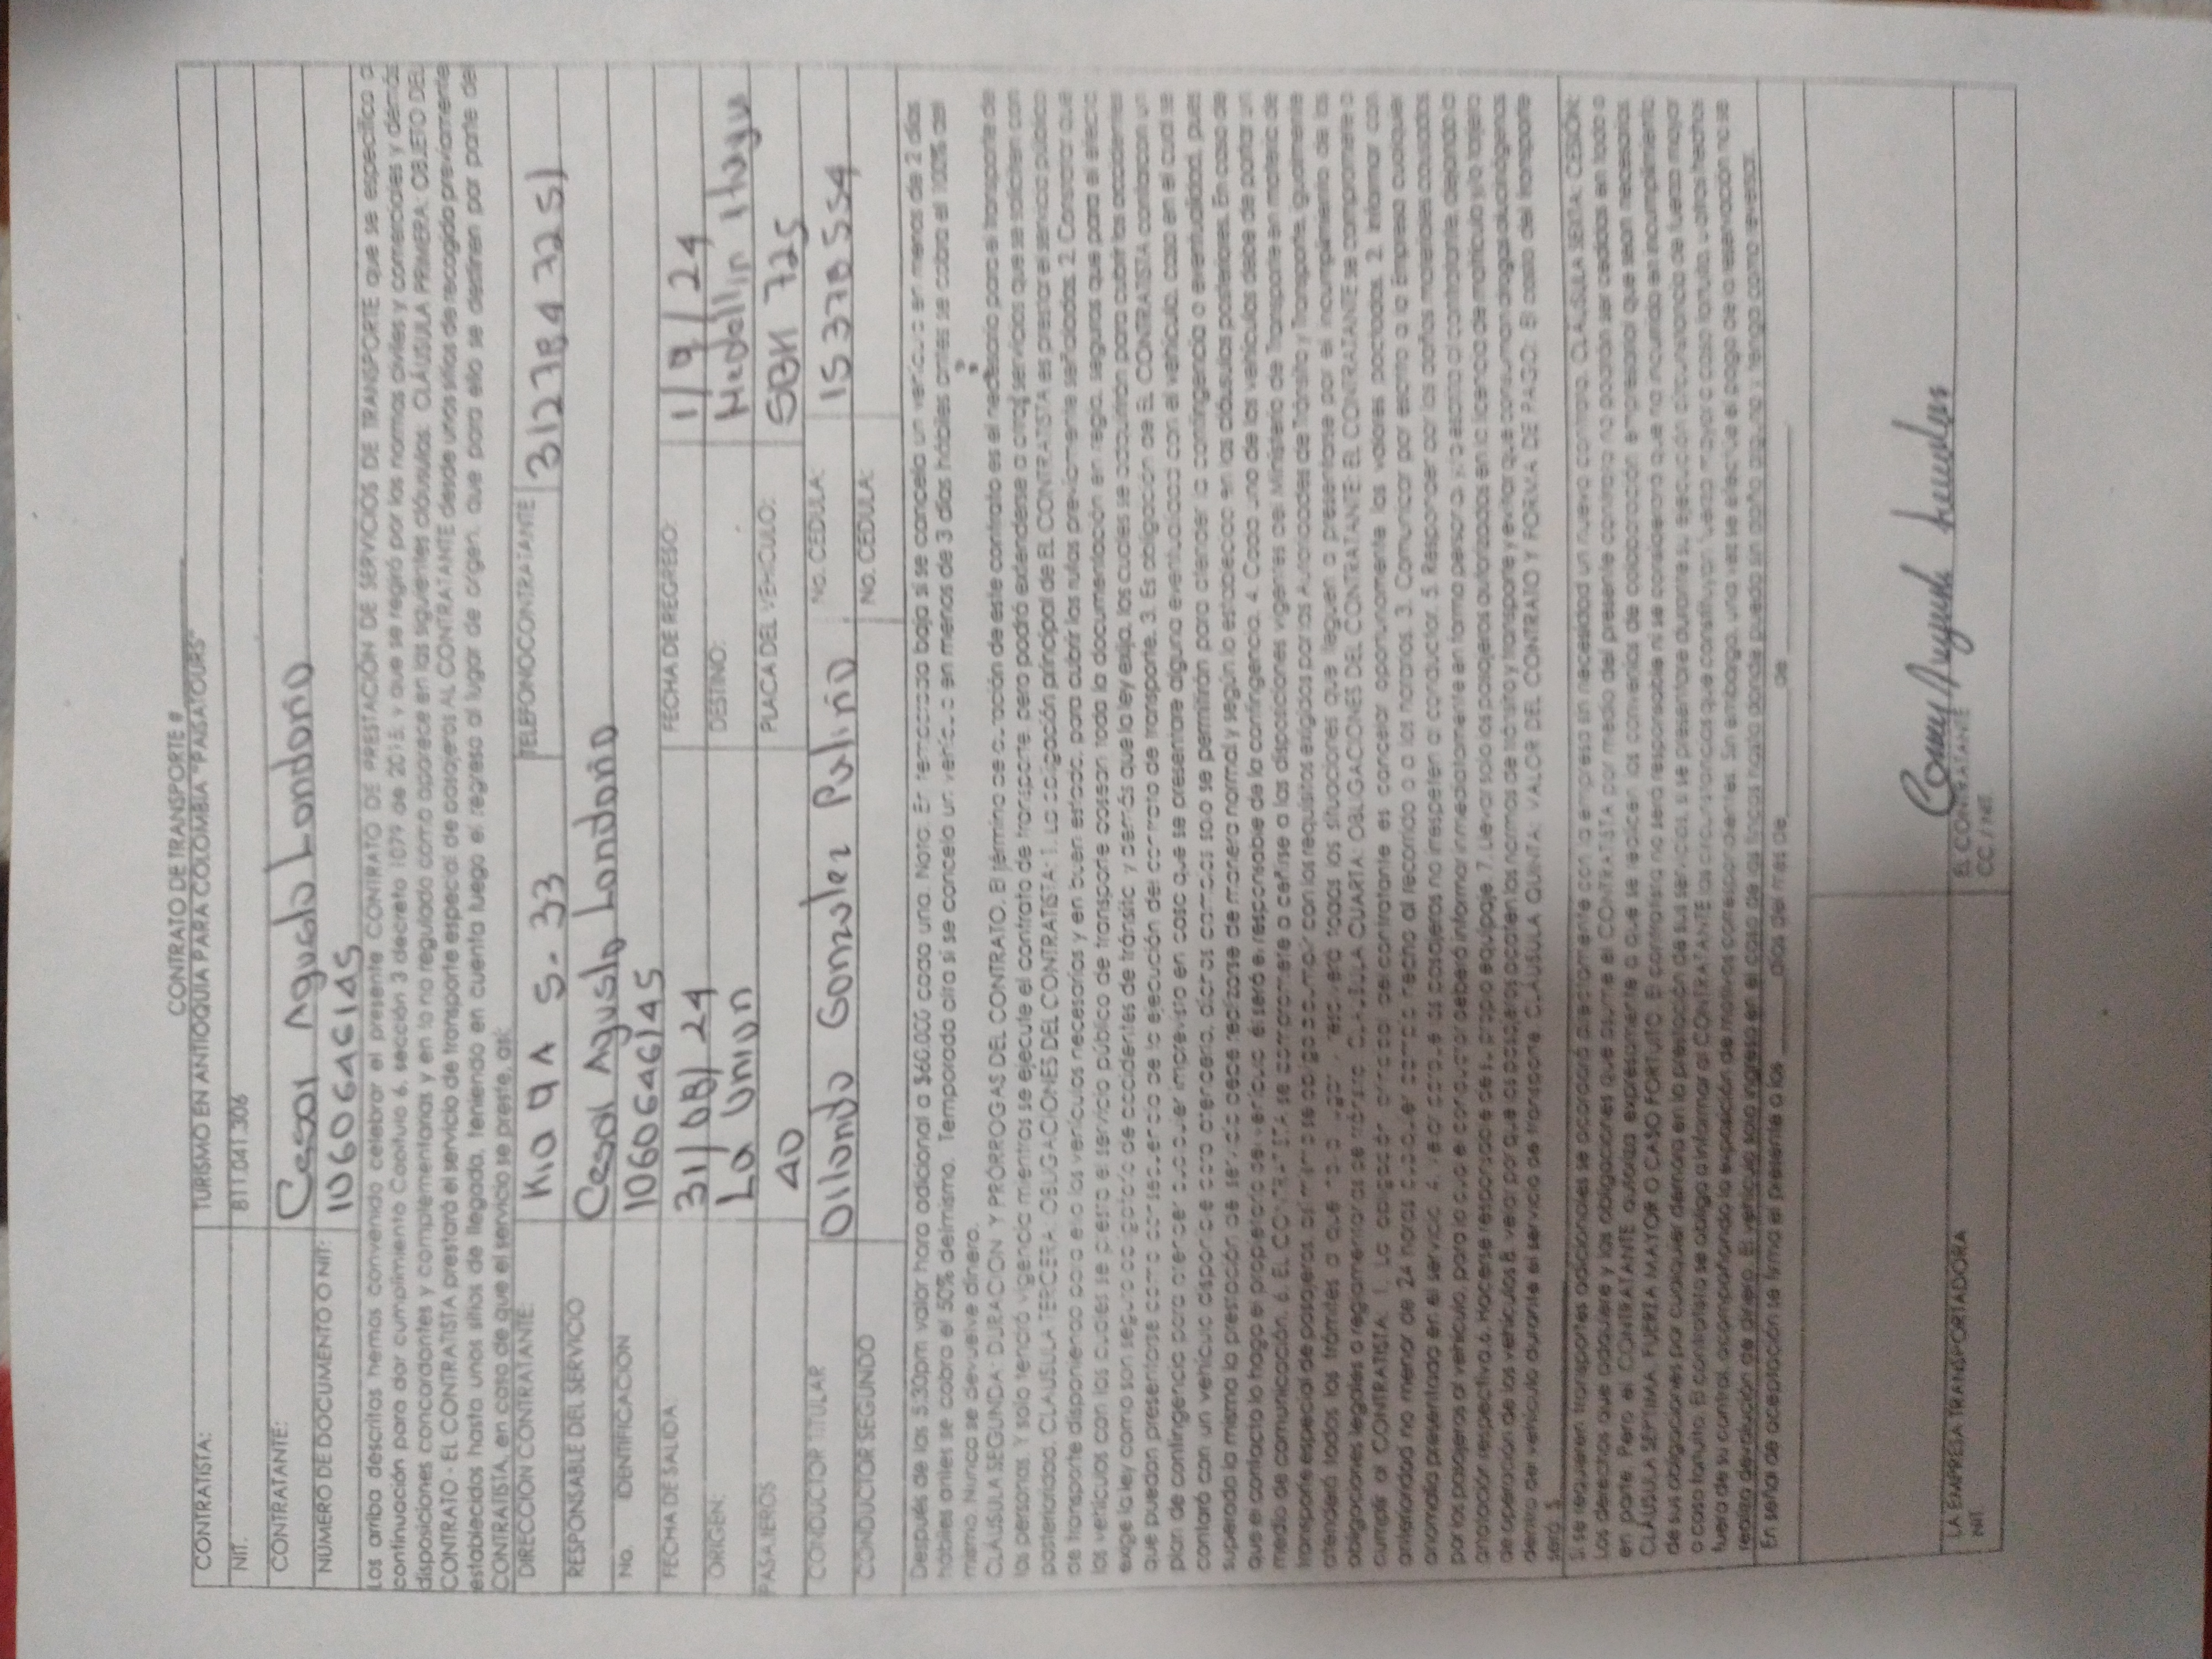 CONTRATO DE TRANSPORTE #
CONTRATISTA: TURISMO EN ANTIOQUIA PARA COLOMBIA "PAISATOURS"
NIT. 811.041.306
CONTRATANTE: Cesar Agusto Londoño
NUMERO DE DOCUMENTO O NIT: 1060646145
Los arriba descritos hemos convenido celebrar el presente CONTRATO DE PRESTACIÓN DE SERVICIOS DE TRANSPORTE que se especifica a
continuación para dar cumplimiento Capitulo 6, sección 3 decreto 1079 de 2015, y que se regirá por las normas civiles y comerciales y demás
disposiciones concordantes y complementarias y en lo no regulado como aparece en las siguientes cláusulas: CLÁUSULA PRIMERA: OBJETO DEL
CONTRATO - EL CONTRATISTA prestará el servicio de transporte especial de pasajeros AL CONTRATANTE desde unos sitios de recogida previamente
establecidos hasta unos sitios de llegada, teniendo en cuenta luego el regreso al lugar de origen, que para ello se destinen por parte del
CONTRATISTA, en caso de que el servicio se preste, así:
DIRECCION CONTRATANTE: 9A 5-33 TELEFONO CONTRATANTE 3127843251
RESPONSABLE DEL SERVICIO Cesar Agusto Londoño
No. IDENTIFICACION 1060646145
FECHA DE SALIDA: 31/08/24 FECHA DE REGRESO: 1/9/24
ORIGEN: La Union DESTINO: Medellin Itagui
PASAJEROS 40 PLACA DEL VEHICULO: 725
CONDUCTOR TITULAR Gonzalez No. CEDULA: 15378554
CONDUCTOR SEGUNDO No. CEDULA:
Después de las 5:30pm valor hora adicional a $60.000 cada una. Nota: En temporada baja si se cancela un vehículo en menos de 2 días
hábiles antes se cobra el 50% del mismo. Temporada alta si se cancela un vehículo en menos de 3 días hábiles antes se cobra el 100% del
mismo. Nunca se devuelve dinero.
CLÁUSULA SEGUNDA: DURACION Y PRÓRROGAS DEL CONTRATO. El término de duración de este contrato es el necesario para el transporte de
las personas. Y solo tendrá vigencia mientras se ejecute el contrato de transporte, pero podrá extenderse a otros servicios que se soliciten con
posterioridad. CLAUSULA TERCERA: OBLIGACIONES DEL CONTRATISTA: 1. La obligación principal de EL CONTRATISTA es prestar el servicio público
de transporte disponiendo para ello los vehículos necesarios y en buen estado, para cubrir las rutas previamente señaladas. 2. Constatar que
los vehículos con los cuales se presta el servicio público de transporte posean toda la documentación en regla, seguros que para el efecto
exige la ley como son seguro obligatorio de accidentes de tránsito, y demás que la ley exija, los cuales se adquirirán para cubrir los accidentes
que puedan presentarse como consecuencia de la ejecución del contrato de transporte. 3. Es obligación de EL CONTRATISTA contar con un
plan de contingencia para atender cualquier imprevisto en caso que se presentare alguna eventualidad con el vehículo, caso en el cual se
contará con un vehículo disponible para atenderla, dichos cambios solo se permitirán para atender la contingencia o eventualidad, pues
superada la misma la prestación de servicio debe realizarse de manera normal y según lo establecido en las cláusulas posteriores. En caso de
que el contacto lo haga el propietario de vehículo, él será el responsable de la contingencia. 4. Cada uno de los vehículos debe de portar un
medio de comunicación. 6. EL CONTRATISTA se compromete a ceñirse a las disposiciones vigentes del Ministerio de Transporte en materia de
transporte especial de pasajeros, así mismo se obliga a cumplir con los requisitos exigidos por las Autoridades de Tránsito y Transporte, igualmente
atenderá todos los trámites a que haya lugar y resolverá todas las situaciones que lleguen a presentarse por el incumplimiento de las
obligaciones legales o reglamentarias de tránsito. CLÁUSULA CUARTA: OBLIGACIONES DEL CONTRATANTE: EL CONTRATANTE se compromete a
cumplir al CONTRATISTA. 1. La obligación principal del contratante es cancelar oportunamente los valores pactados. 2. Informar con
anterioridad no menor de 24 horas cualquier cambio hecho al recorrido o a los horarios. 3. Comunicar por escrito a la Empresa cualquier
anomalía presentada en el servicio. 4. Velar porque los pasajeros no irrespeten al conductor. 5. Responder por los daños materiales causados
por los pasajeros al vehículo, para lo cual el conductor deberá informar inmediatamente en forma personal y/o escrita al contratante, dejando la
anotación respectiva. 6. Hacerse responsable de su propio equipaje. 7. Llevar solo los pasajeros autorizados en la licencia de matrícula y/o tarjeta
de operación de los vehículos 8. velar por que los pasajeros acaten las normas de tránsito y transporte y evitar que consuman drogas alucinógenas
dentro del vehículo durante el servicio de transporte. CLÁUSULA QUINTA: VALOR DEL CONTRATO Y FORMA DE PAGO: El costo del transporte
será $
Si se requieren transportes adicionales se acordará directamente con la empresa sin necesidad un nuevo contrato. CLÁUSULA SEXTA: CESIÓN:
Los derechos que adquiere y las obligaciones que asume el CONTRATISTA por medio del presente contrato no podrán ser cedidas en todo o
en parte. Pero el CONTRATANTE autoriza expresamente a que se realicen los convenios de colaboración empresarial que sean necesarios.
CLÁUSULA SEPTIMA. FUERZA MAYOR O CASO FORTUITO. El contratista no será responsable ni se considerará que ha incurrido en incumplimiento
de sus obligaciones por cualquier demora en la prestación de sus servicios, si se presentare durante su ejecución circunstancia de fuerza mayor
o caso fortuito. El contratista se obliga a informar al CONTRATANTE las circunstancias que constituyan fuerza mayor o caso fortuito, u otros hechos
fuera de su control, acompañando la exposición de motivos correspondientes. Sin embargo, una vez se efectúe el pago de la reservación no se
realiza devolución de dinero. El vehículo solo ingresa en el caso de las fincas hasta donde pueda sin daño alguno y tenga como reversar.
En señal de aceptación se firma el presente a los ______ días del mes de ______ de ______
LA EMPRESA TRANSPORTADORA EL CONTRATANTE
NIT CC./ Nit.